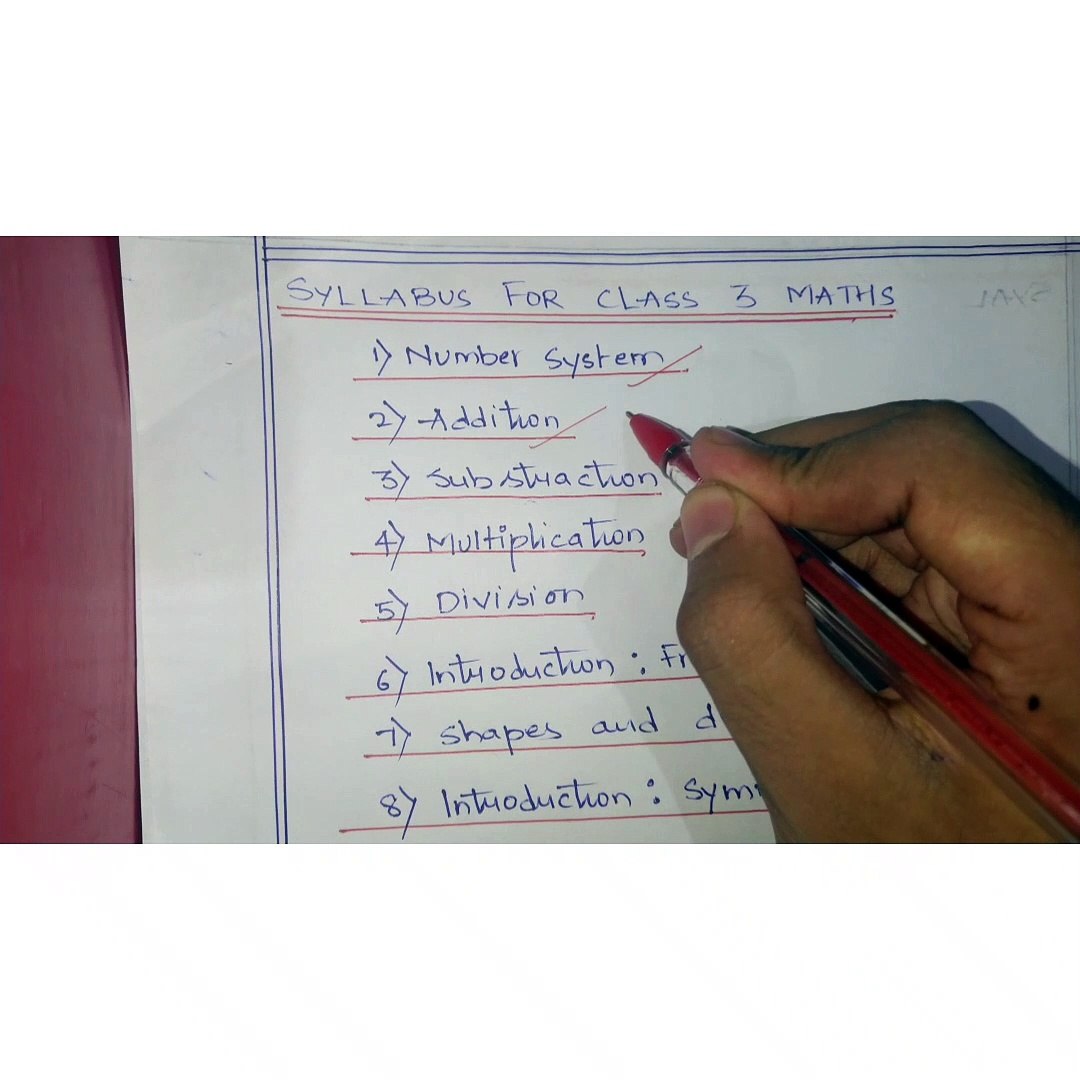 SYLLABUS FOR CLASS 3 MATHS
1) Number System
2) Addition
3) Substraction
4) Multiplication
5) Division
6) Introduction : Fr
7) Shapes and d
8) Introduction : Sym